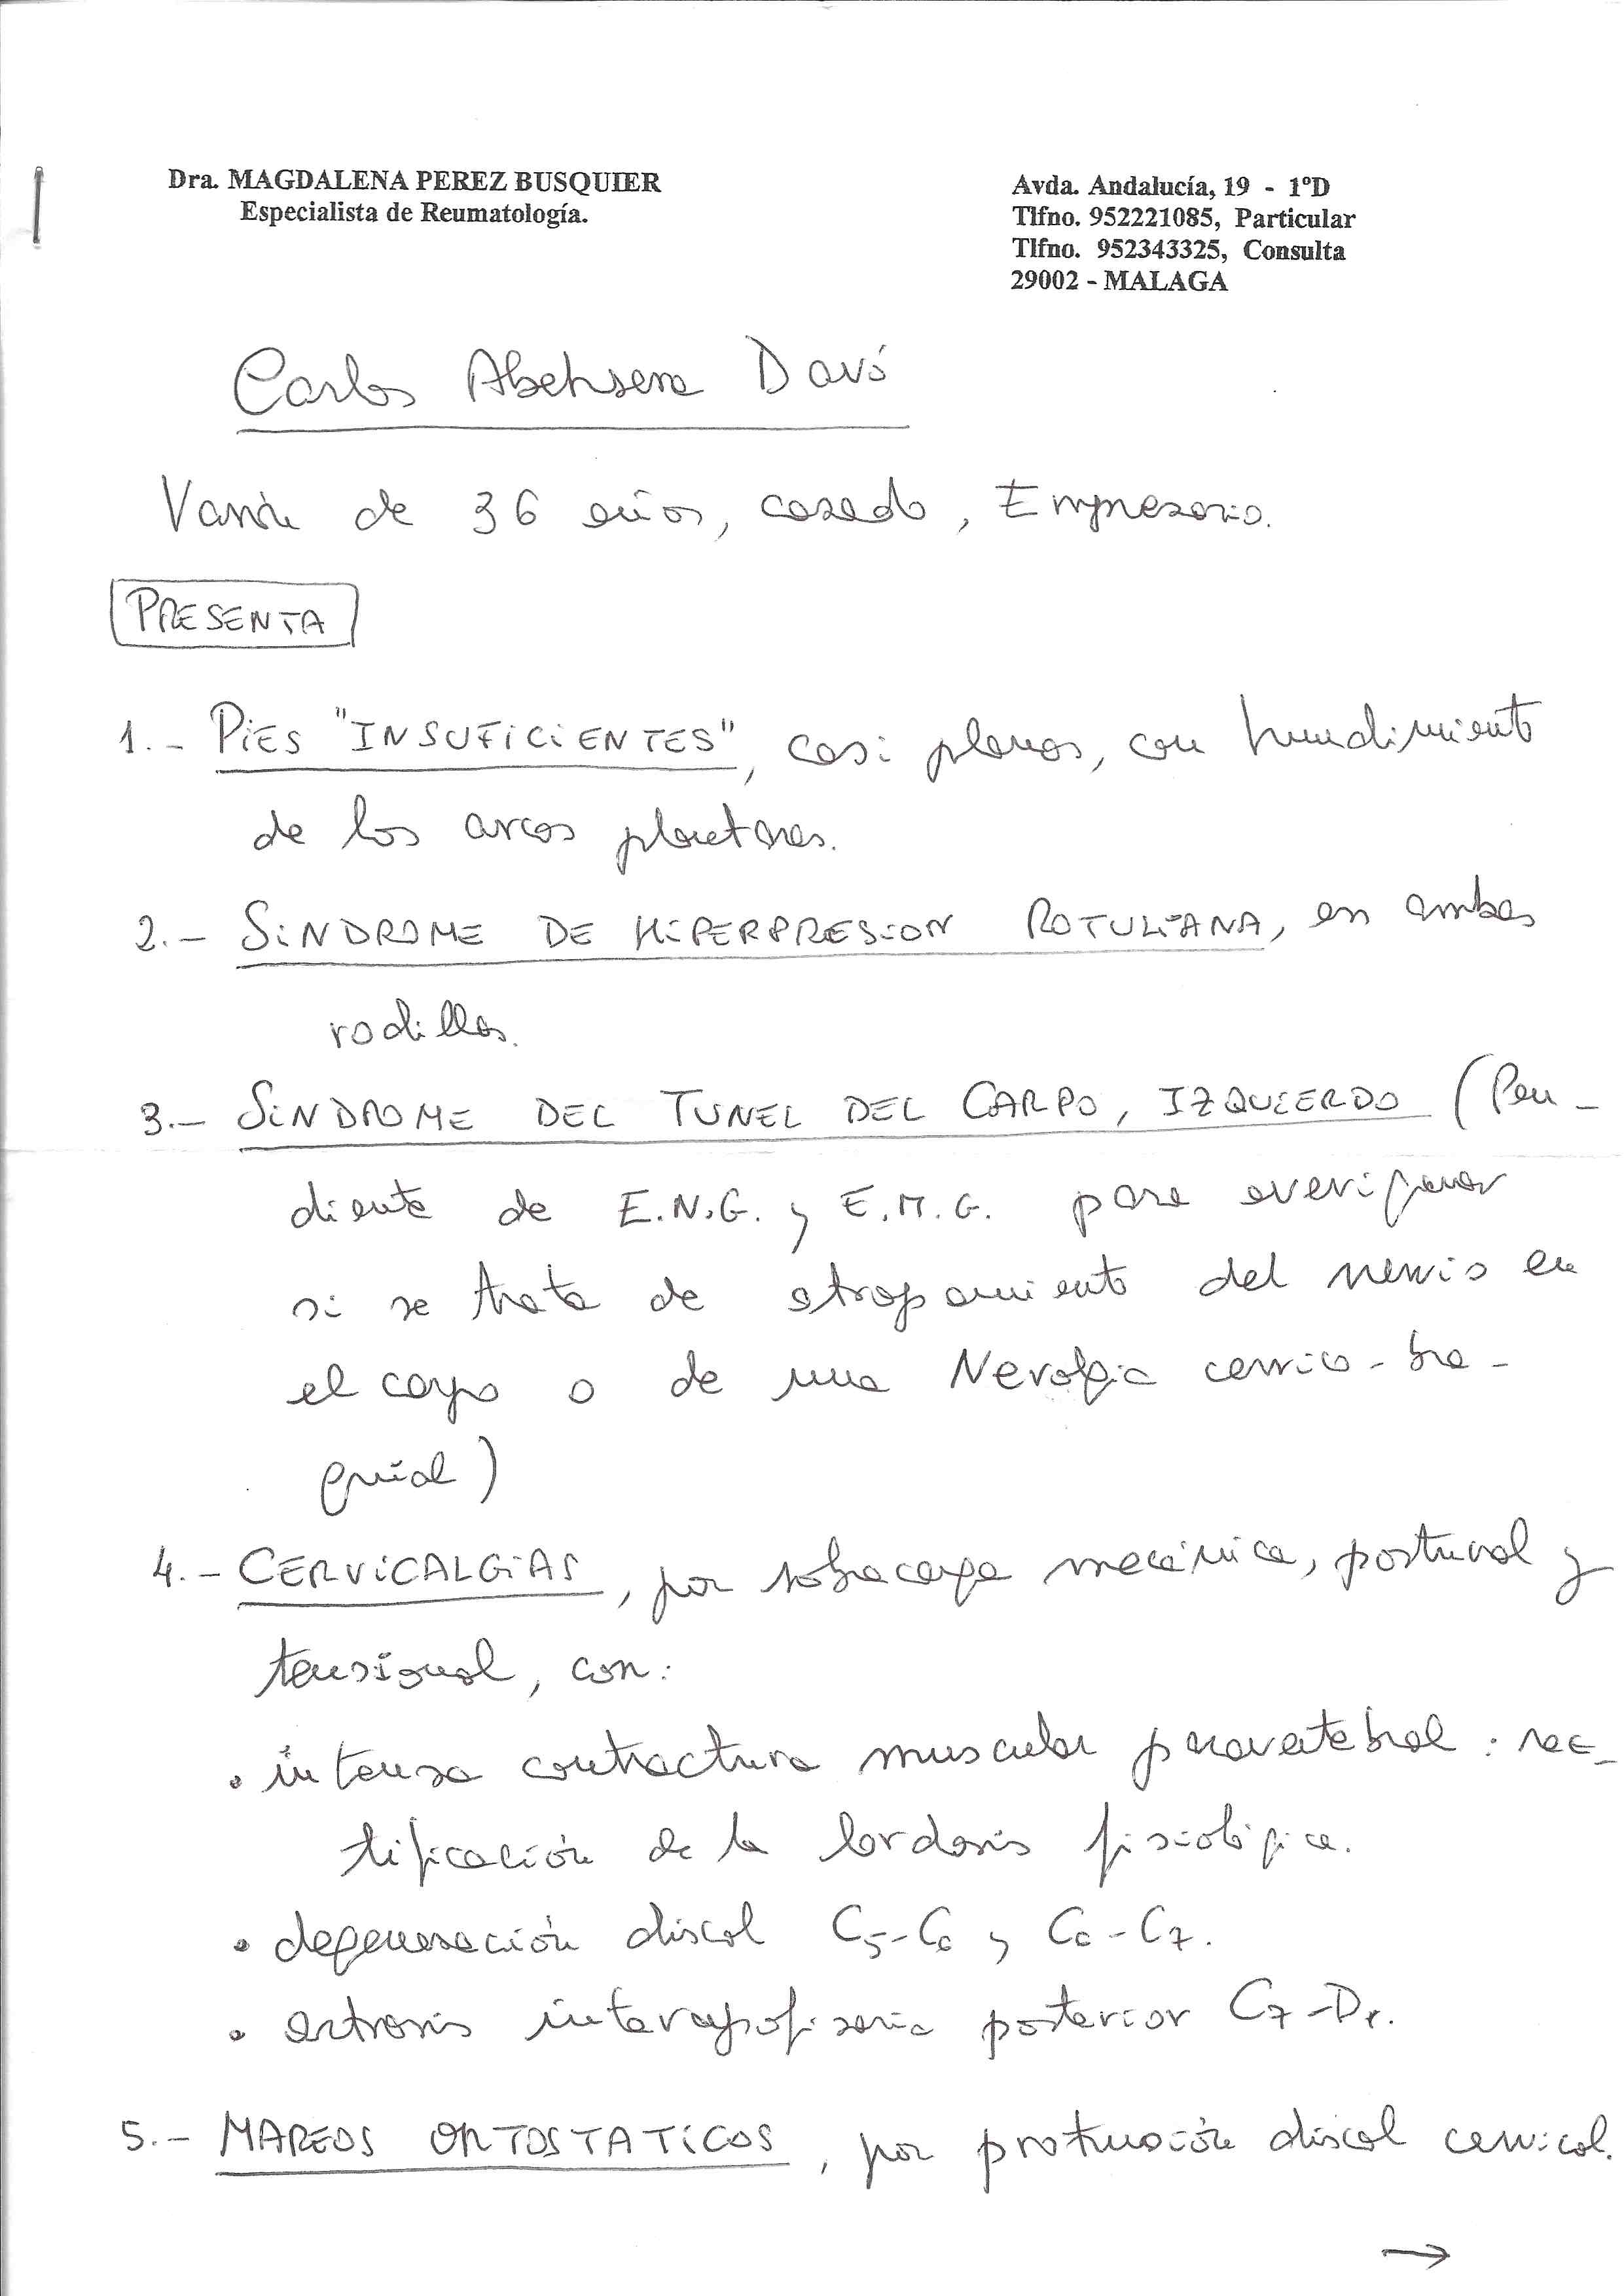 Dra. MAGDALENA PEREZ BUSQUIER
Especialista de Reumatología.
Avda. Andalucía, 19 - 1ºD
Tlfno. 952221085, Particular
Tlfno. 952343325, Consulta
29002 - MALAGA
Carlos Abehsera Davó
Varón de 36 años, casado, Empresario.
PRESENTA
1.- PiES "INSUFiCiENTES", casi planos, con hundimiento
de los arcos plantares.
2.- SiNDROME DE HiPERPRESiON ROTULiANA, en ambas
rodillas.
3.- SiNDROME DEL TUNEL DEL CARPO, IZQUiERDO (Pen-
diente de E.N.G. y E.M.G. para averiguar
si se trata de atrapamiento del nervio en
el carpo o de una Nevralgia cervico-bra-
quial)
4.- CERViCALGiAS, por sobrecarga mecánica, postural y
tensional, con:
• intensa contractura muscular paravertebral: rec-
tificación de la lordosis fisiológica.
• degeneración discal C5-C6 y C6-C7.
• artrosis interapofisaria posterior C7-D1.
5.- MAREOS ORTOSTATiCOS, por protrusión discal cervical.
→